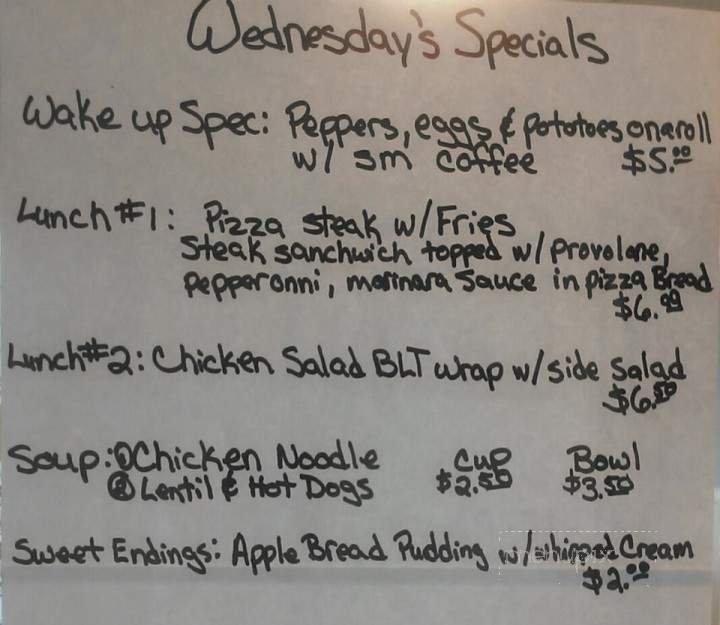 Wednesday's Specials
Wake up Spec: Peppers, eggs & pototoes on a roll
w/ sm coffee $5.00
Lunch #1: Pizza steak w/Fries
Steak sanchwich topped w/ provolone,
pepperonni, marinara Sauce in pizza Bread
$6.99
Lunch #2: Chicken Salad BLT wrap w/side salad
$6.50
Soup: ① Chicken Noodle Cup Bowl
② Lentil & Hot Dogs $2.50 $3.50
Sweet Endings: Apple Bread Pudding w/whipped Cream
$2.00